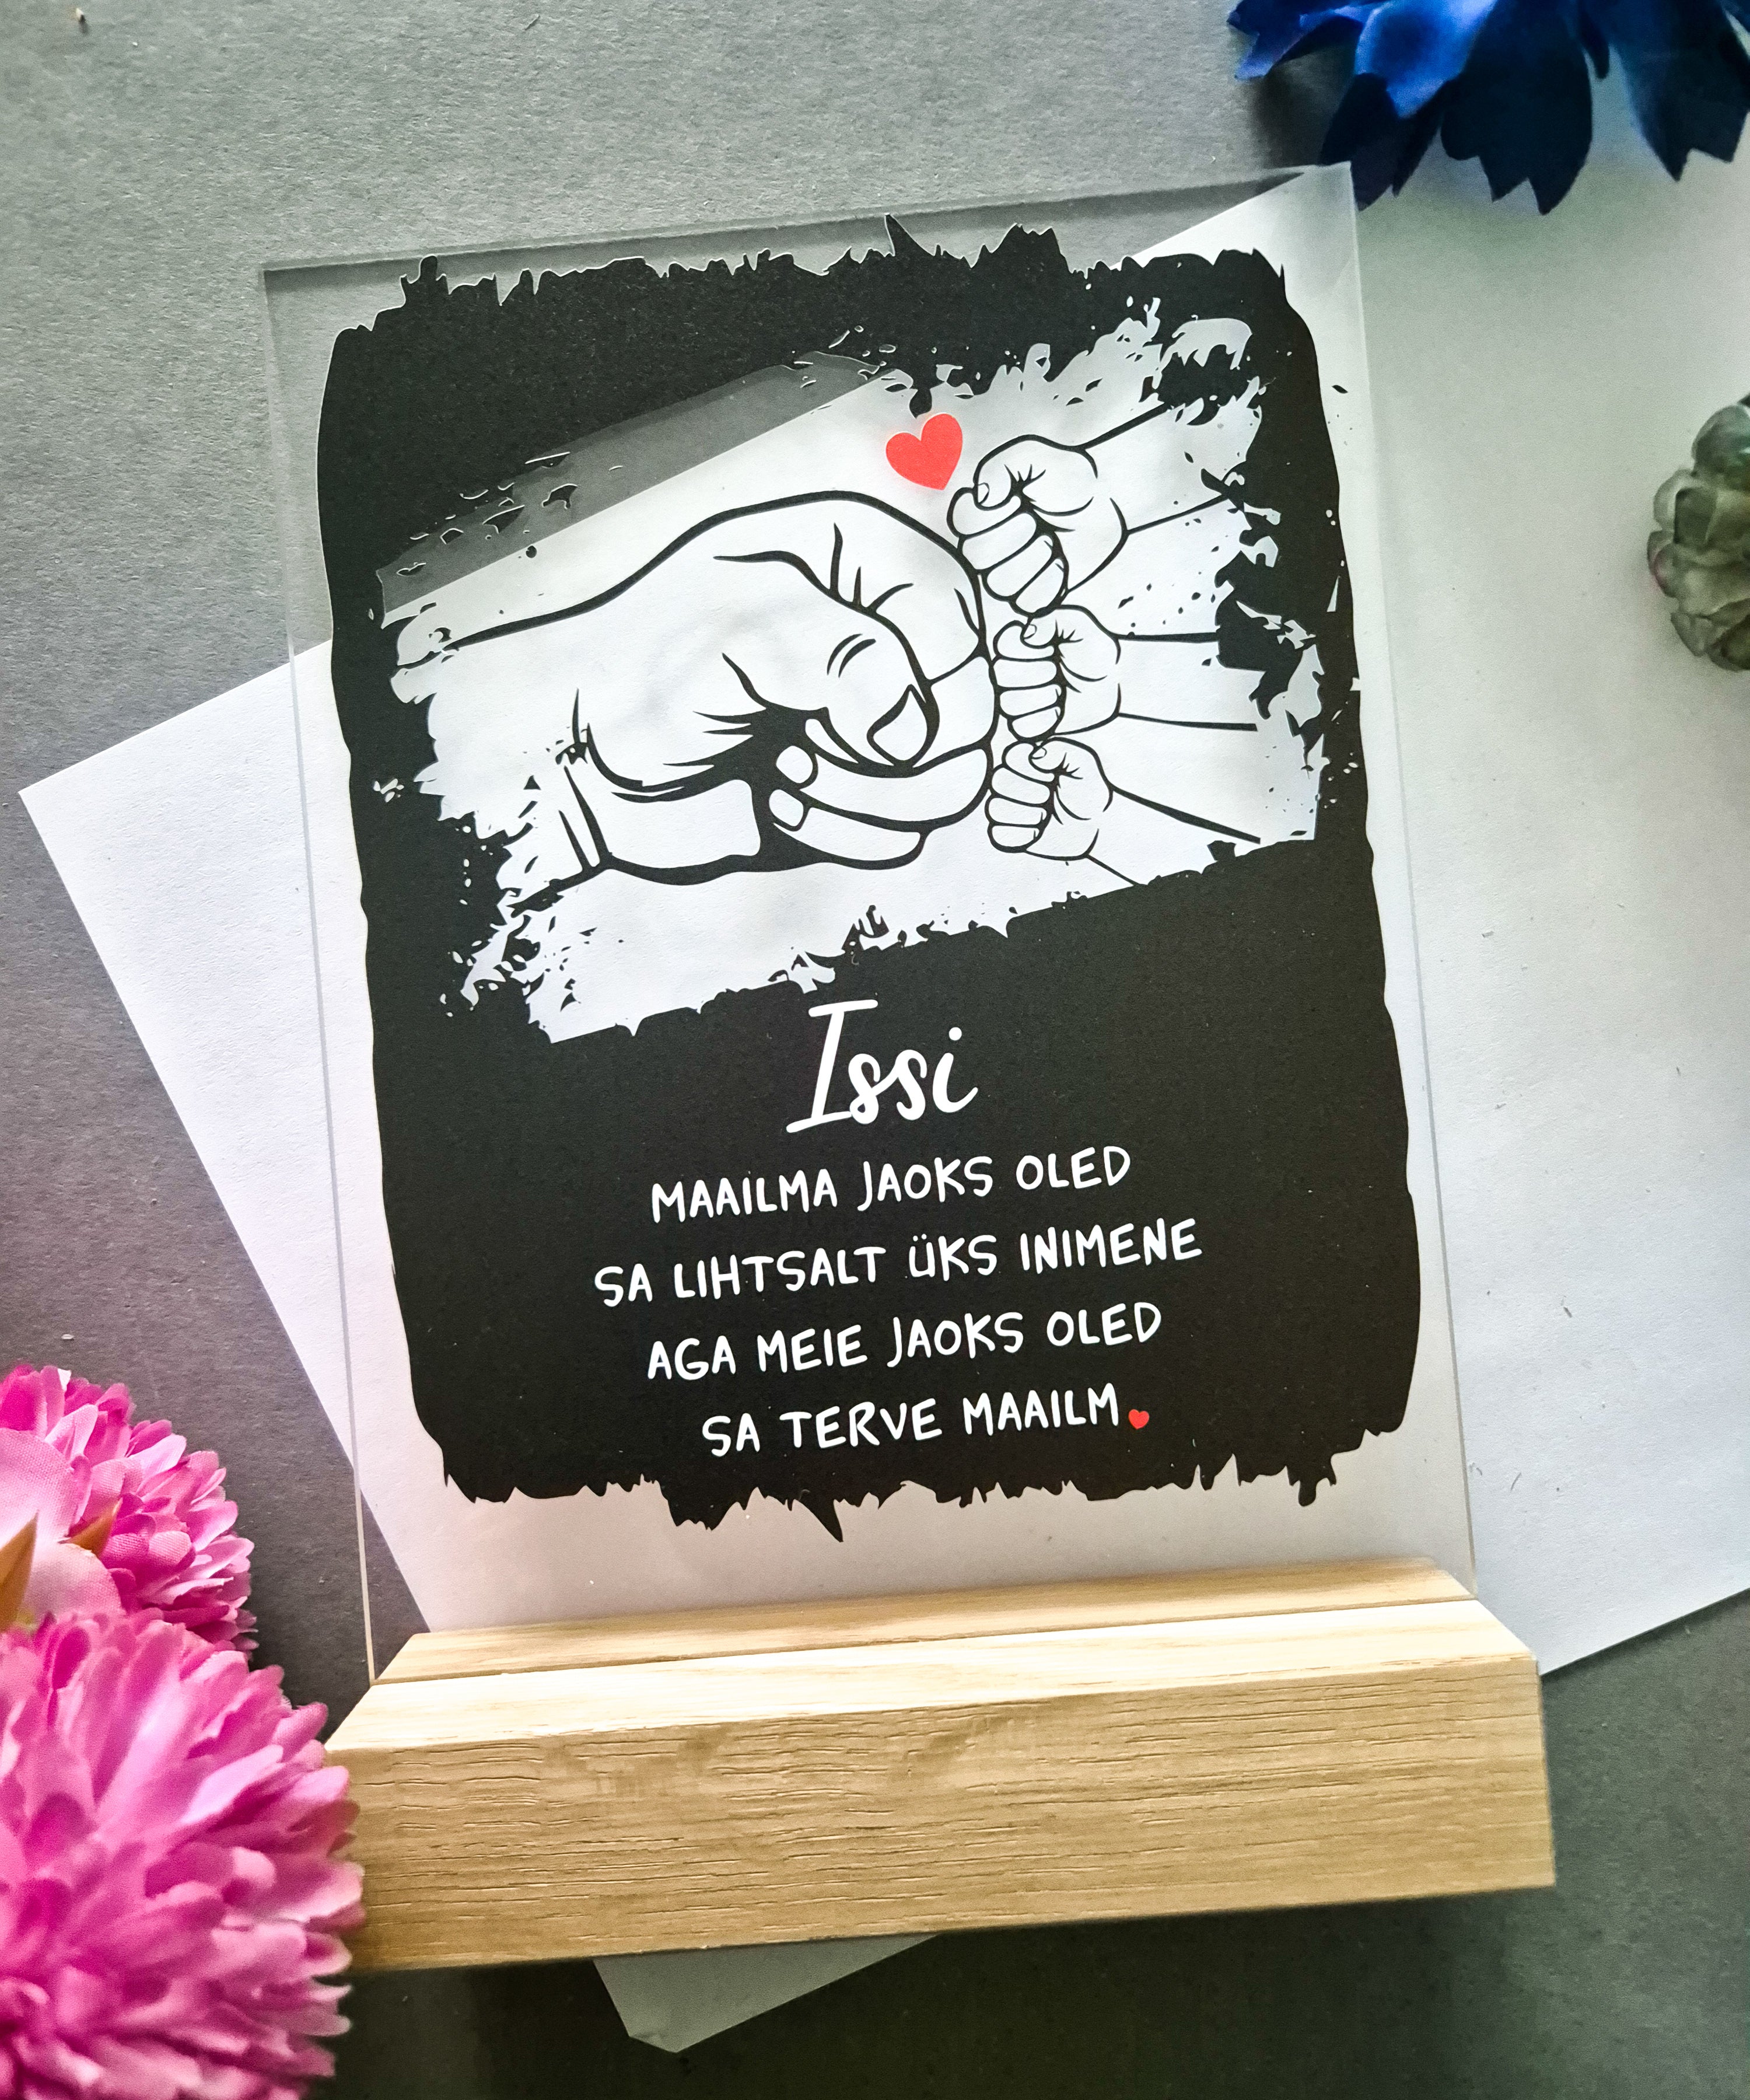 Issi
MAAILMA JAOKS OLED
SA LIHTSALT ÜKS INIMENE
AGA MEIE JAOKS OLED
SA TERVE MAAILM